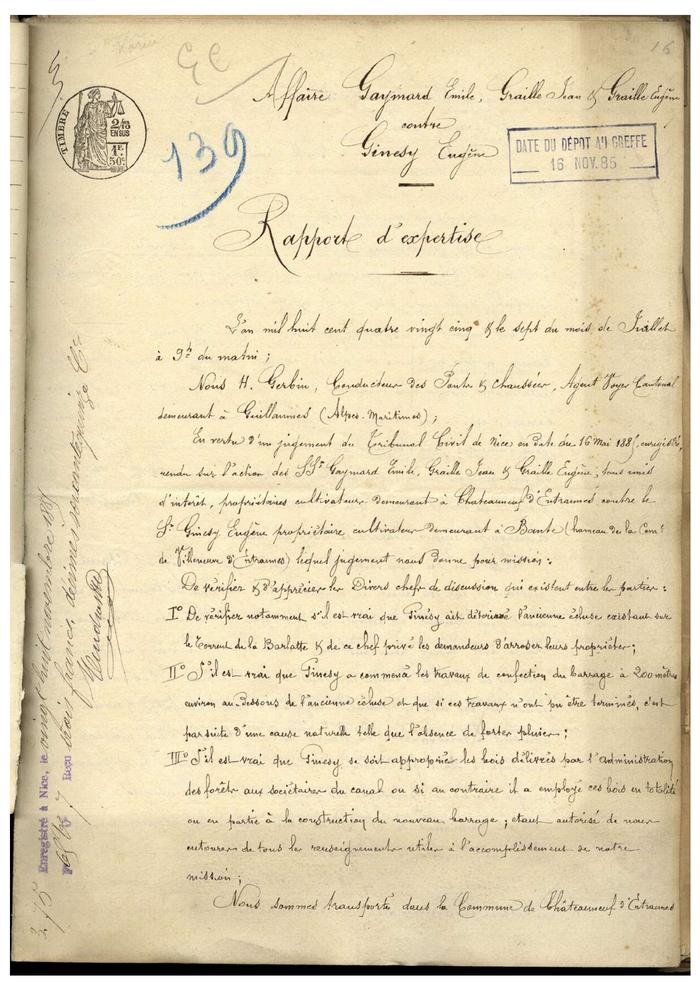 16
139
TIMBRE
2/10
EN SUS
1F.
50c
Affaire Gaymard Emile, Graille Jean & Graille Eugène
contre
Ginesy Eugène
DATE DU DÉPOT AU GREFFE
16 NOV. 85
Rapport d'expertise
L'an mil huit cent quatre vingt cinq & le sept du mois de Juillet
à 9h du matin ;
Nous H. Gerbin, Conducteur des Ponts & chaussées, Agent Voyer Cantonal
demeurant à Guillaumes (Alpes-Maritimes) ;
En vertu d'un jugement du Tribunal Civil de Nice en date du 16 Mai 1885, enregistré,
rendu sur l'action des SSrs Gaymard Emile, Graille Jean & Graille Eugène, tous unis
d'intérêt, propriétaires cultivateurs demeurant à Chateauneuf d'Entraunes contre le
Sr Ginesy Eugène propriétaire cultivateur demeurant à Bante (hameau de la Comne
de Villeneuve d'Entraunes) lequel jugement nous donne pour mission :
De vérifier & d'apprécier les Divers chefs de discussion qui existent entre les parties :
I° De vérifier notamment s'il est vrai que Ginesy ait détérioré l'ancienne écluse existant sur
le Torrent de la Barlatte & de ce chef privé les demandeurs d'arroser leurs propriétés ;
II° S'il est vrai que Ginesy a commencé les travaux de confection du barrage à 200 mètres
environ au-dessous de l'ancienne écluse et que si ces travaux n'ont pu être terminés, c'est
par suite d'une cause naturelle telle que l'absence de fortes pluies ;
III° S'il est vrai que Ginesy se soit approprié les bois délivrés par l'administration
des forêts aux sociétaires du canal ou si au contraire il a employé ces bois en totalité
ou en partie à la construction du nouveau barrage ; étant autorisé de nous
entourer de tous les renseignements utiles à l'accomplissement de notre
mission ;
Nous sommes transportés dans la Commune de Châteauneuf d'Entraunes
Enregistré à Nice, le vingt huit novembre 1885
Reçu trois francs, décimes soixante quinze Ces
3.75